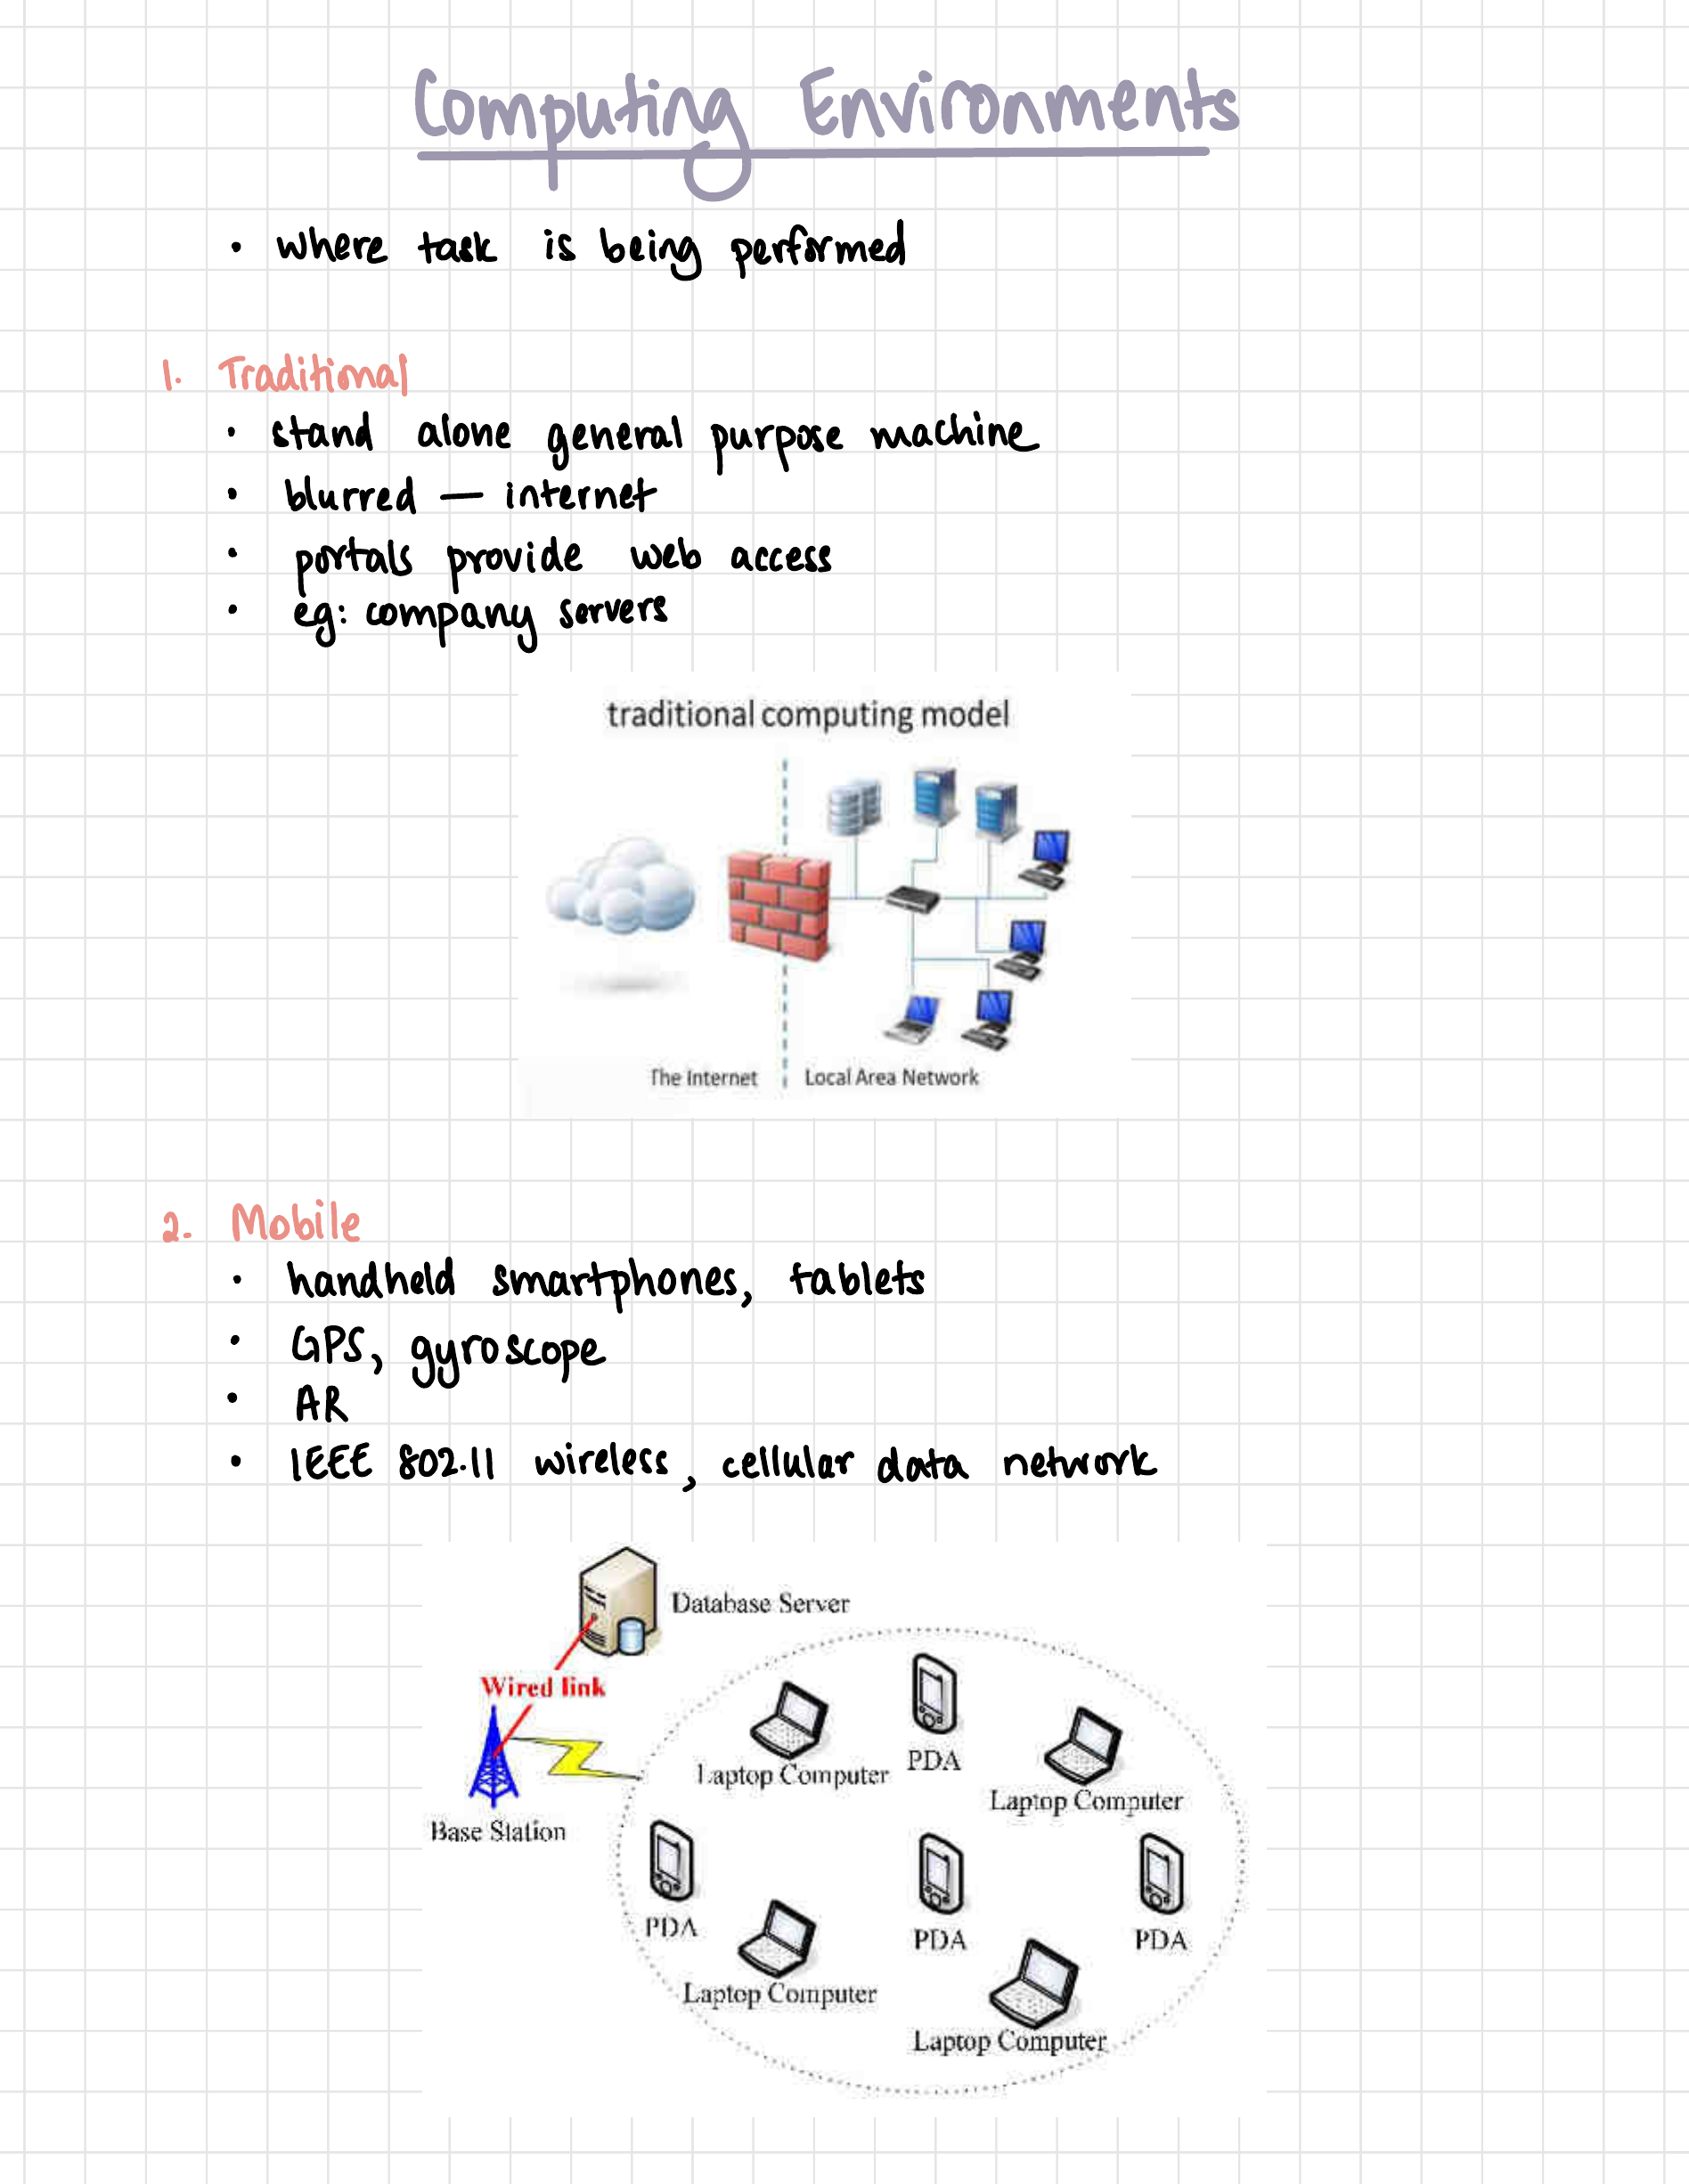 Computing Environments
• where task is being performed
1. Traditional
• stand alone general purpose machine
• blurred — internet
• portals provide web access
• eg: company servers
traditional computing model
The Internet
Local Area Network
2. Mobile
• handheld smartphones, tablets
• GPS, gyroscope
• AR
• IEEE 802.11 wireless, cellular data network
Database Server
Wired link
Laptop Computer
PDA
Laptop Computer
Base Station
PDA
PDA
PDA
Laptop Computer
Laptop Computer